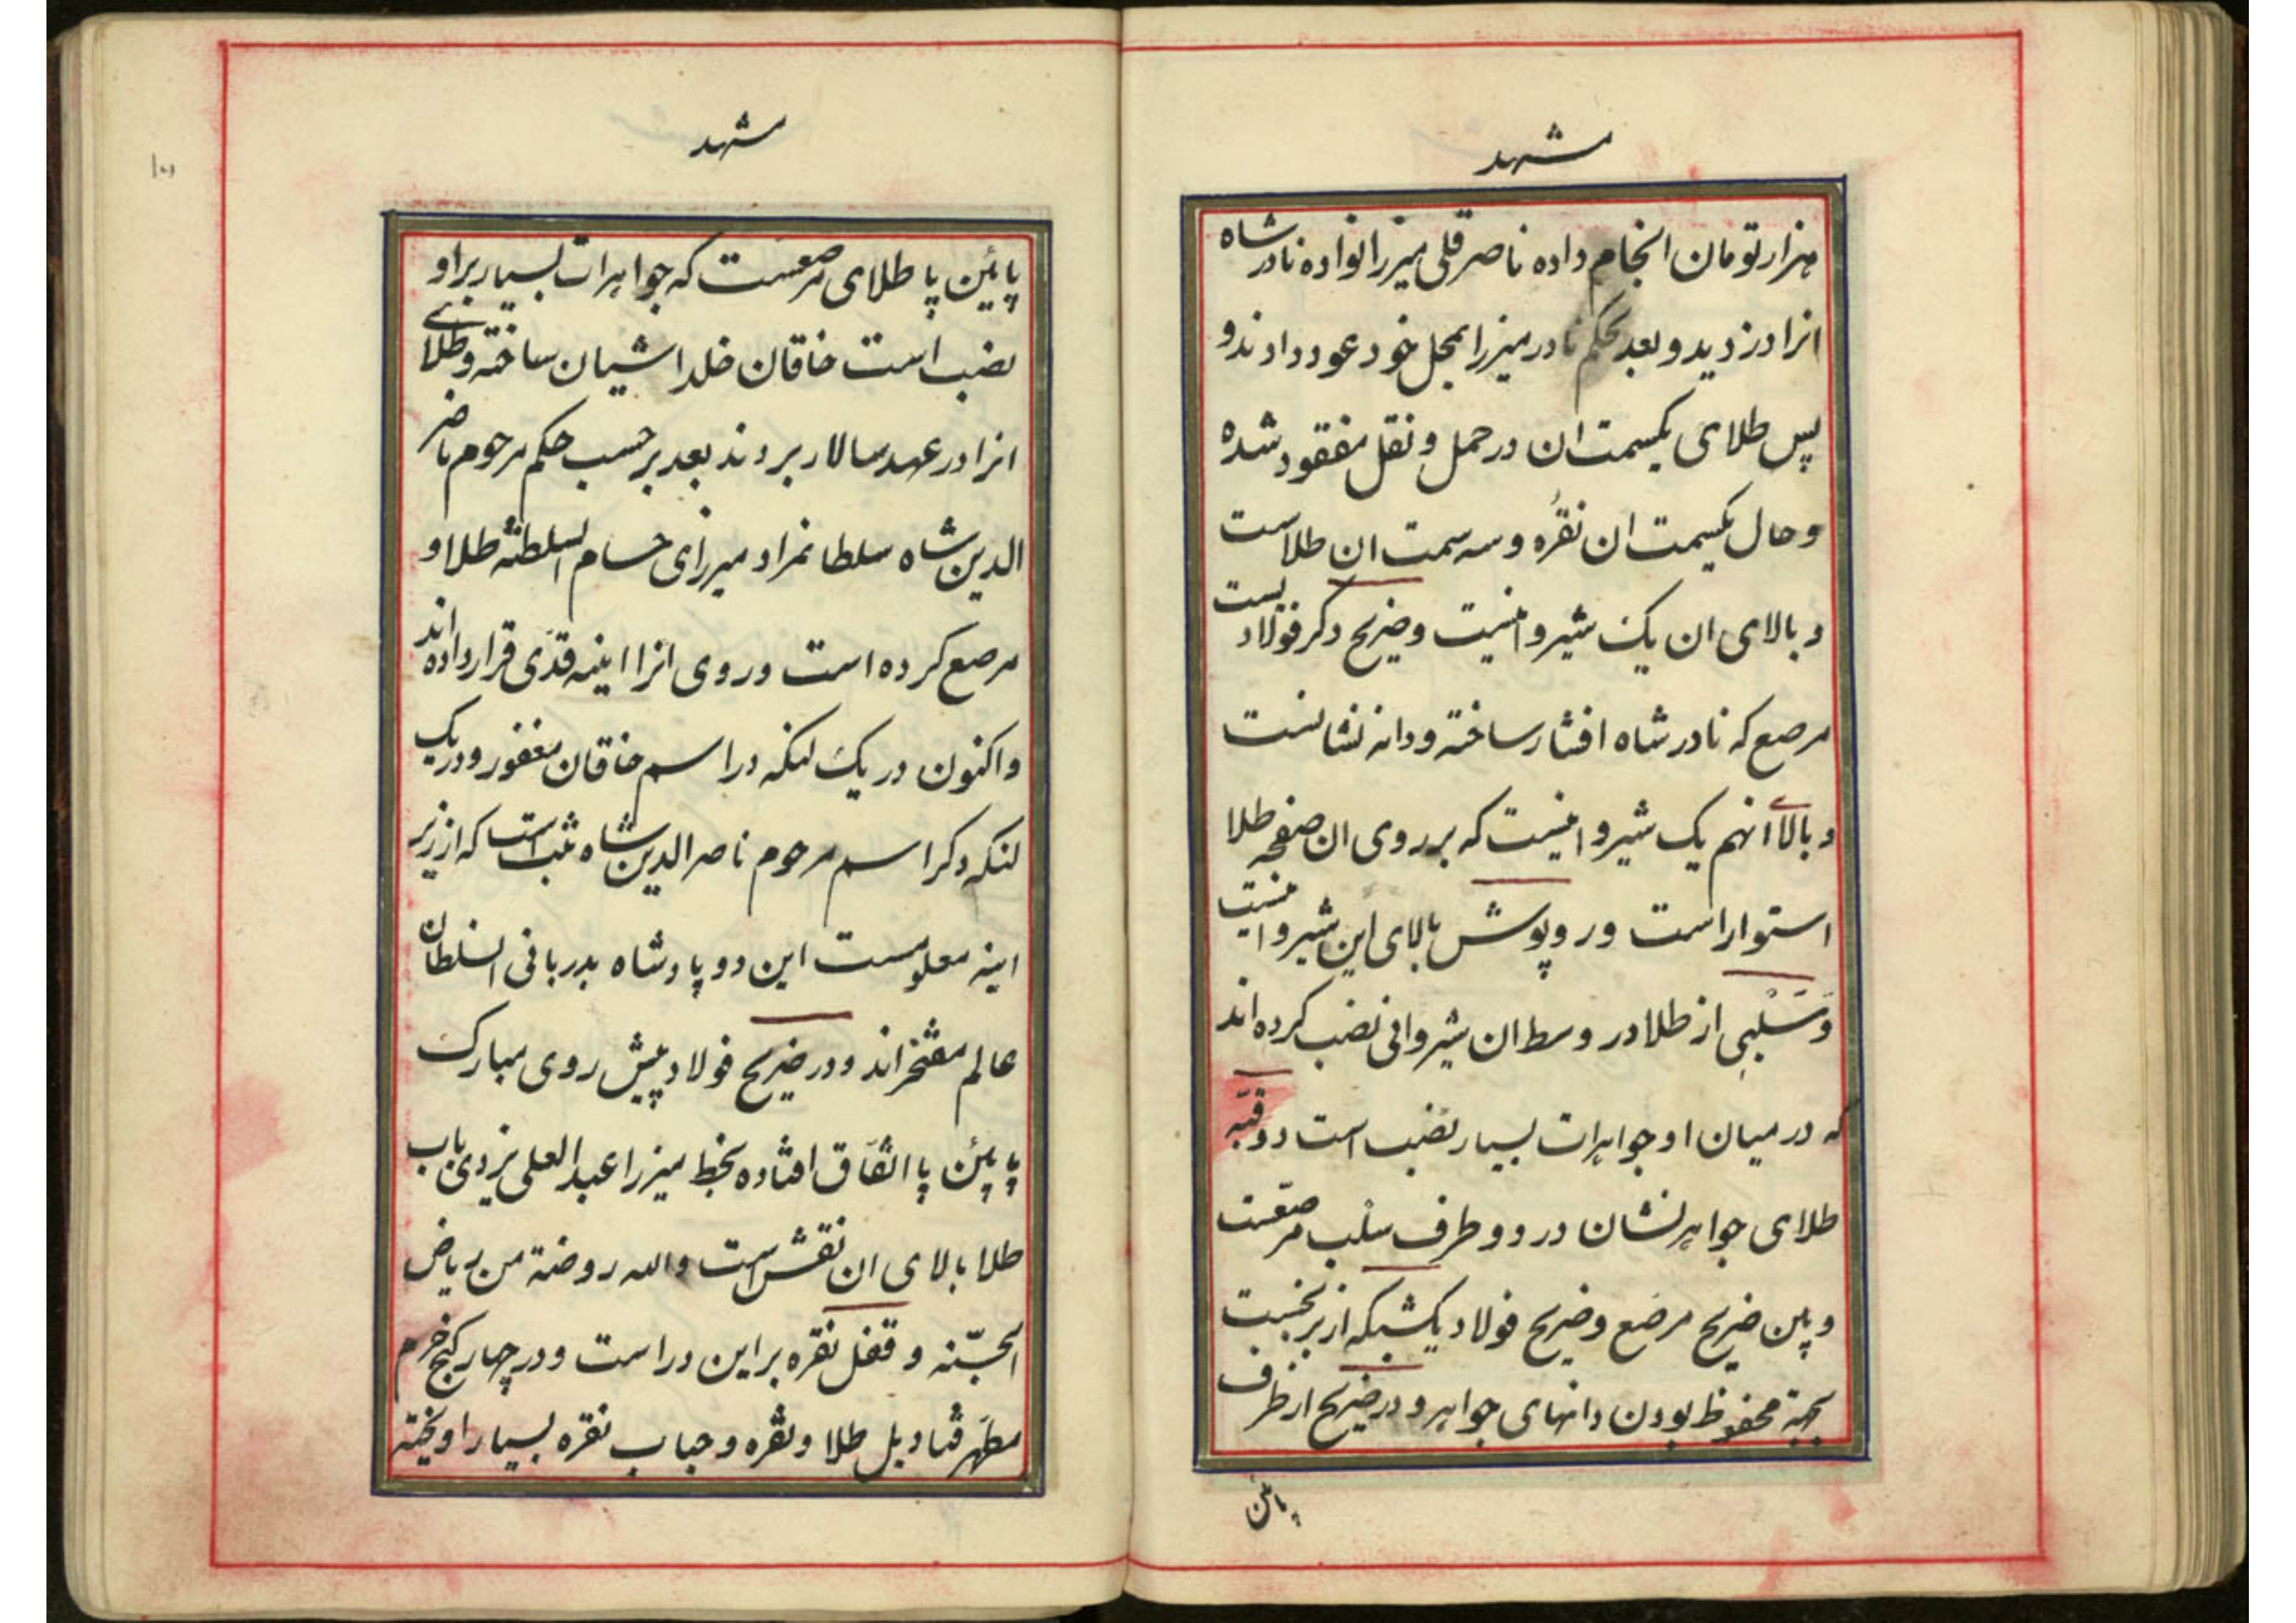 مشهد
هزار تومان انجام داده ناصر قلی میرزا نواده نادر شاه
انرا دزدید و بعد بحکم نادر میرزا بمحل خود عود دادند و
پس طلای یکسمت ان در حمل و نقل مفقود شده
و حال یکسمت ان نقره و سه سمت ان طلاست
و بالای ان یک شیروانیست و ضریح دکر فولادیست
مرصع که نادر شاه افشار ساخته و دانه نشانست
و بالای انهم یک شیروانیست که بر روی ان صفحه طلا
استوار است و روپوش بالای این شیروانیست
وسلبی از طلا در وسط ان شیروانی نصب کرده اند
که در میان او جواهرات بسیار نصب است دو قبّه
طلای جواهر نشان در دو طرف سلب مرصّعست
و بین ضریح مرصع و ضریح فولاد یک شبکه از برنجست
بجهة محفوظ بودن دانهای جواهر و در ضریح از طرف
پائن
مشهد
پائین پا طلای مرصعست که جواهرات بسیار بر او
نصب است خاقان خلد اشیان ساخته و طلای
انرا در عهد سالار بردند بعد بر حسب حکم مرحوم ناصر
الدین شاه سلطانمراد میرزای حسام السلطنه طلا و
مرصع کرده است و روی انرا اینه قدّی قرار داده اند
و اکنون در یک لنکه در اسم خاقان مغفور و در یک
لنکه دکر اسم مرحوم ناصر الدین شاه ثبت است که از زیر
اینه معلومست این دو پادشاه بدربانی السلطان
عالم مفتخراند و در ضریح فولاد پیش روی مبارک
پایئن پا اتّفاق افتاده بخط میرزا عبد العلی یزدی باب
طلا بالای ان نقش است والله روضة من ریاض
الجنّه و قفل نقره بر این در است و در چهار کنج حرم
مطهر قنادیل طلا و نقره و حباب نقره بسیار اویخته